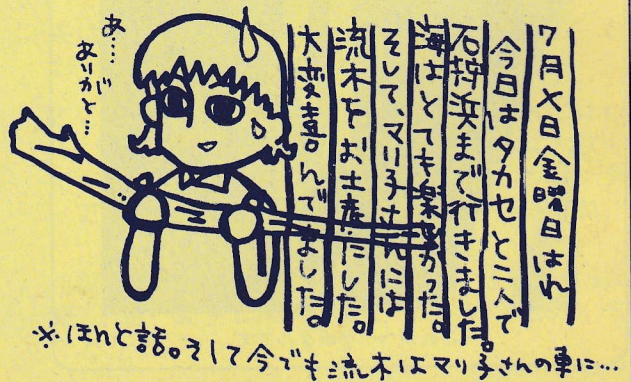 7月×日金曜日はれ
今日はタカセと二人で
石狩浜まで行きました。
海はとても楽しかった。
そして、マリ子さんには
流木をお土産にした。
大変喜んでました。
あ…
ありがと…
※ほんと話。そして今でも流木はマリ子さんの車に…